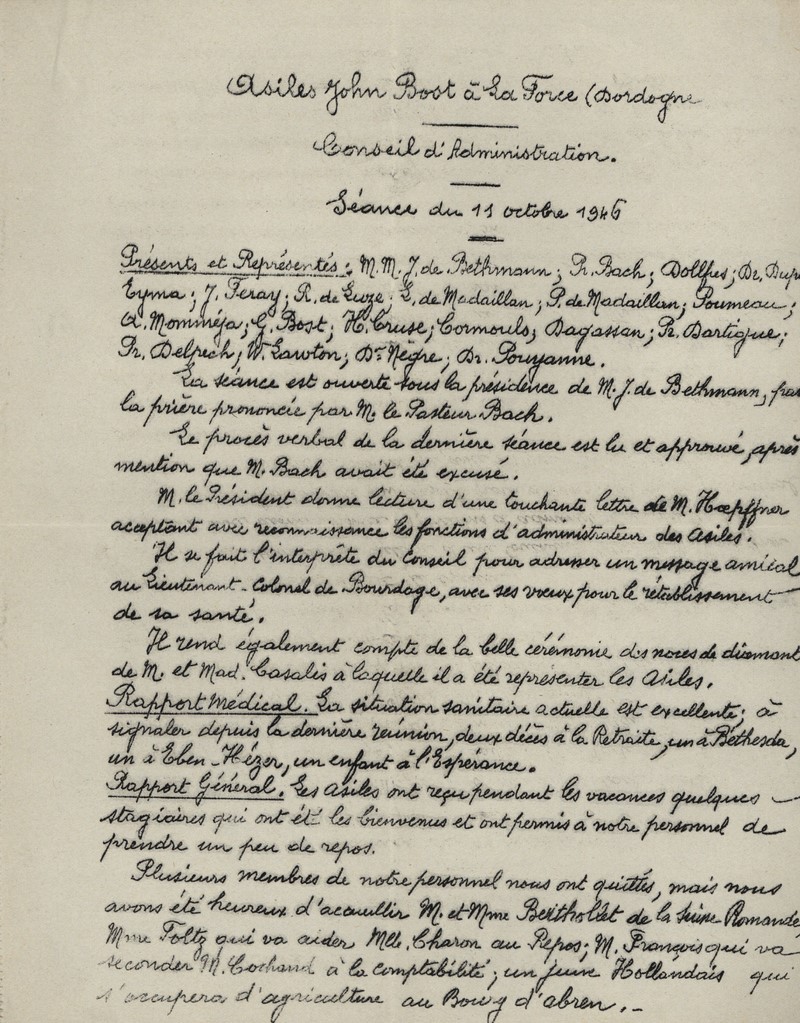 Asiles John Bost à La Force (Dordogne
Conseil d'Administration.
Séance du 11 octobre 1946
Présents et Représentés : M.M. J. de Bethmann ; Pr. Bach ; Dollfus ; Dr. Dup
Eyma ; J. Feray ; R. de Luze ; L. de Madaillan ; P. de Madaillan ; Poumeau ;
A. Momméja ; G. Bost ; H. Cruse ; Cormouls ; Dagassan ; Pr. Dartigue ;
Pr. Delpech ; W. Lawton ; Dr Nègre ; Dr. Pouyanne.
La séance est ouverte sous la présidence de M. J. de Bethmann, par
la prière prononcée par M. le Pasteur Bach.
Le procès verbal de la dernière séance est lu et approuvé, après
mention que M. Bach avait été excusé.
M. le Président donne lecture d'une touchante lettre de M. Hœpffner
acceptant avec reconnaissance les fonctions d'administrateur des Asiles.
Il se fait l'interprète du Conseil pour adresser un message amical
au Lieutenant-Colonel de Bourdage, avec ses vœux pour le rétablissement
de sa santé.
Il rend également compte de la belle cérémonie des noces de diamant
de M. et Mad. Casalis à laquelle il a été représenter les Asiles.
Rapport Médical. La situation sanitaire actuelle est excellente ; à
signaler depuis la dernière réunion, deux décès à la Retraite, un à Béthesda,
un à Eben-Hézer, un enfant à l'Espérance.
Rapport Général. Les Asiles ont reçu pendant les vacances quelques
stagiaires qui ont été les bienvenus et ont permis à notre personnel de
prendre un peu de repos.
Plusieurs membres de notre personnel nous ont quittés, mais nous
avons été heureux d'accueillir M. et Mme Berthollet de la Suisse Romande
Mme Foltz qui va aider Mlle. Charon au Repos ; M. François qui va
seconder M. Cochand à la comptabilité ; un jeune Hollandais qui
s'occupera d'agriculture au Bourg d'abren. -